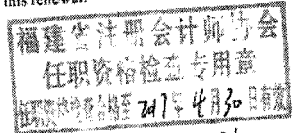 this renewal.
福建省注册会计师协会
任职资格检查专用章
任职资格检查合格至2017年4月30日有效